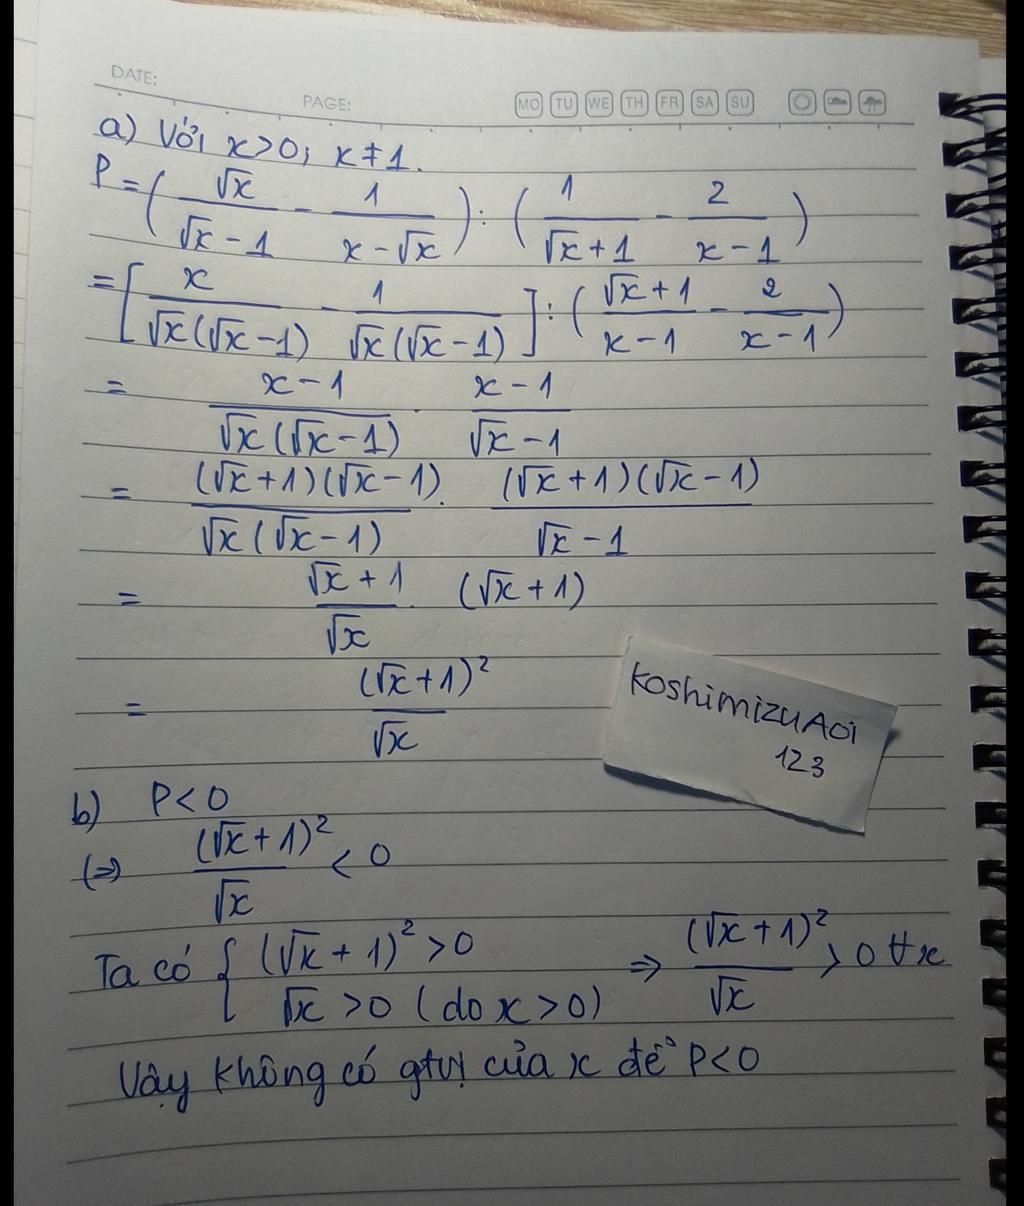 DATE:
PAGE:
MO TU WE TH FR SA SU
a) Với x>0; x≠1.
P = (√x/(√x-1) - 1/(x-√x)) : (1/(√x+1) - 2/(x-1))
= [x/(√x(√x-1)) - 1/(√x(√x-1))] : ((√x+1)/(x-1) - 2/(x-1))
= (x-1)/(√x(√x-1)) . (x-1)/(√x-1)
= (√x+1)(√x-1)/(√x(√x-1)) . (√x+1)(√x-1)/(√x-1)
= (√x+1)/√x . (√x+1)
= (√x+1)²/√x
KoshimizuAoi
123
b) P<0
(⇒) (√x+1)²/√x < 0
Ta có { (√x+1)² >0
√x >0 (do x>0) ⇒ (√x+1)²/√x >0 ∀x
Vậy không có gtrị của x để P<0